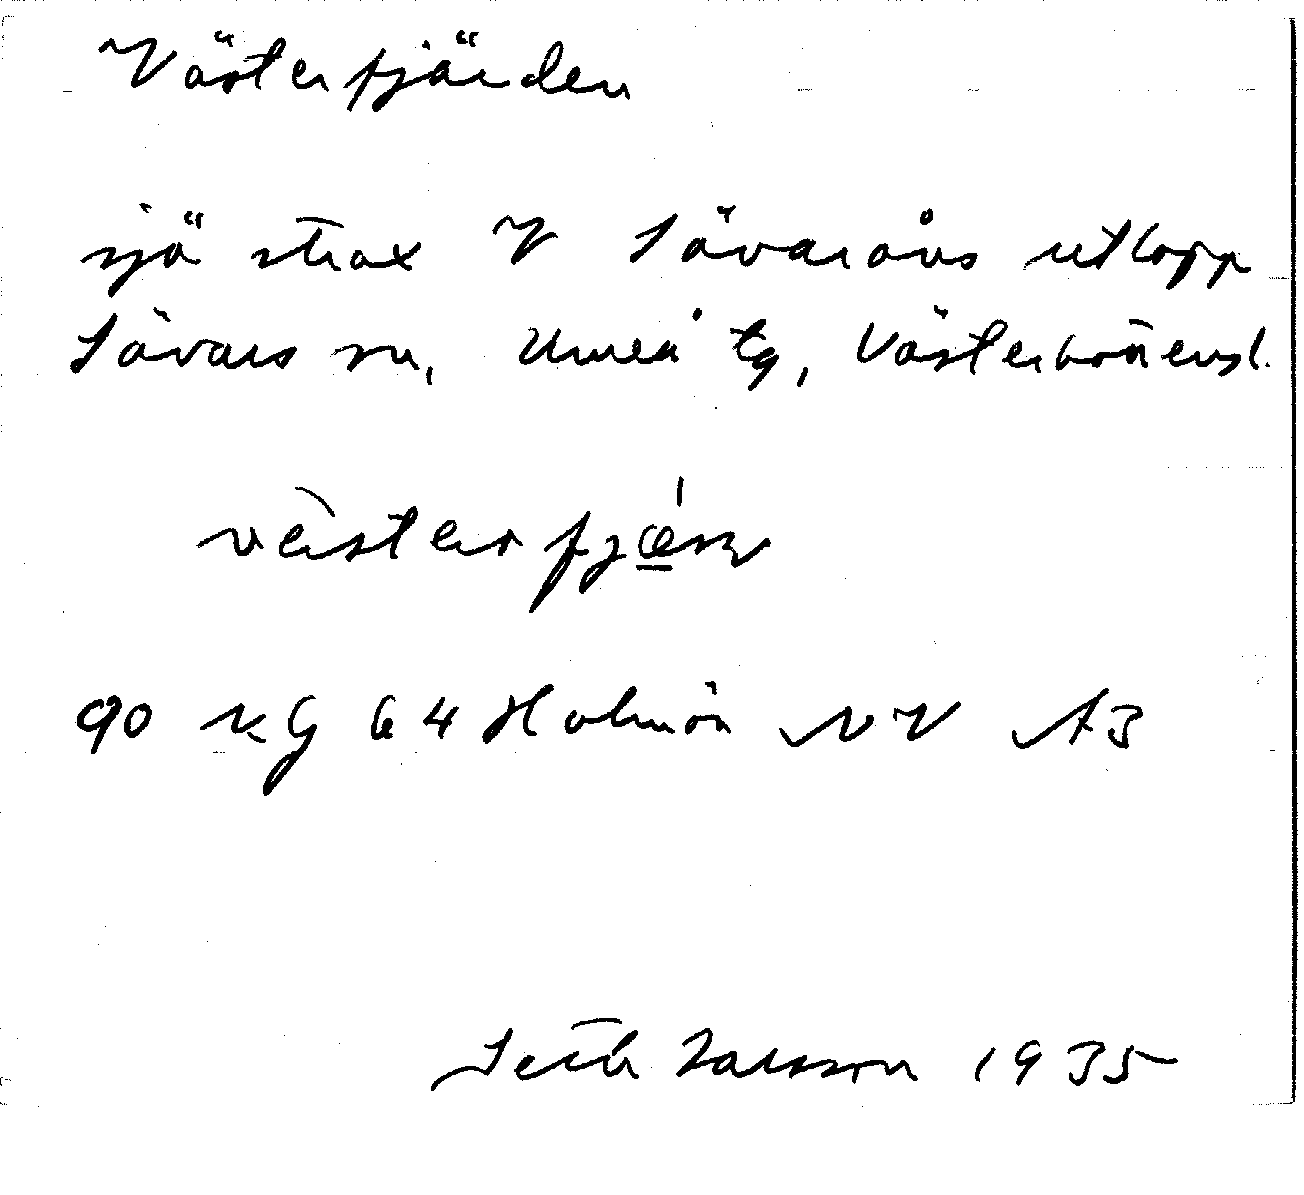 Västerfjärden
sjö strax V Sävaråns utlopp
Sävars sn, Umeå tg, Västerbottensl.
90 KG 64 Holmön NV A3
Seth Larsson 1935